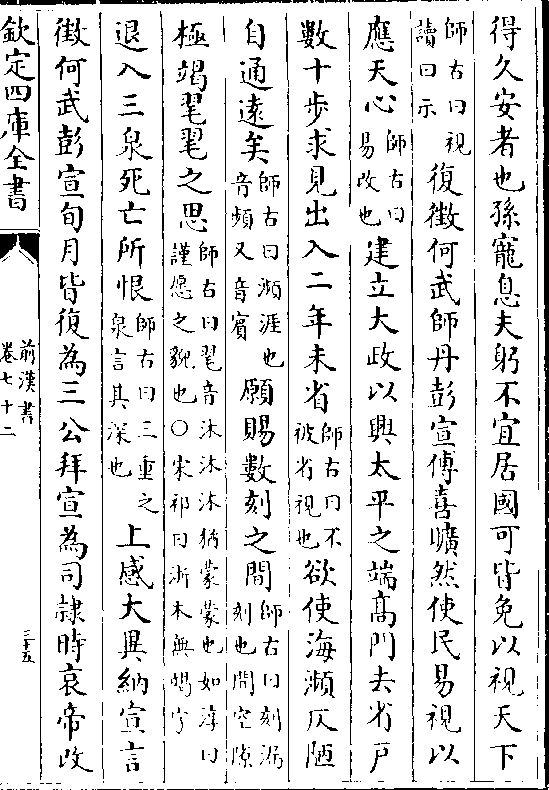 得久安者也孫寵息夫躬不宜居國可皆免以視天下
師古曰視讀曰示復徵何武師丹彭宣傅喜曠然使民易視以
應天心師古曰易改也建立大政以興太平之端髙門去省戶
數十步求見出入二年未省師古曰不被省視也欲使海瀕仄陋
自通遠矣師古曰瀕涯也音頻又音賓願賜數刻之間師古曰刻漏刻也間空隙
極竭毣毣之思師古曰毣音沐沐沐猶蒙蒙也如淳曰謹愿之貌也○宋祁曰浙本無竭字
退入三泉死亡所恨師古曰三重之泉言其深也上感大異納宣言
徵何武彭宣旬月皆復為三公拜宣為司隸時哀帝改
欽定四庫全書
前漢書
卷七十二
三十五